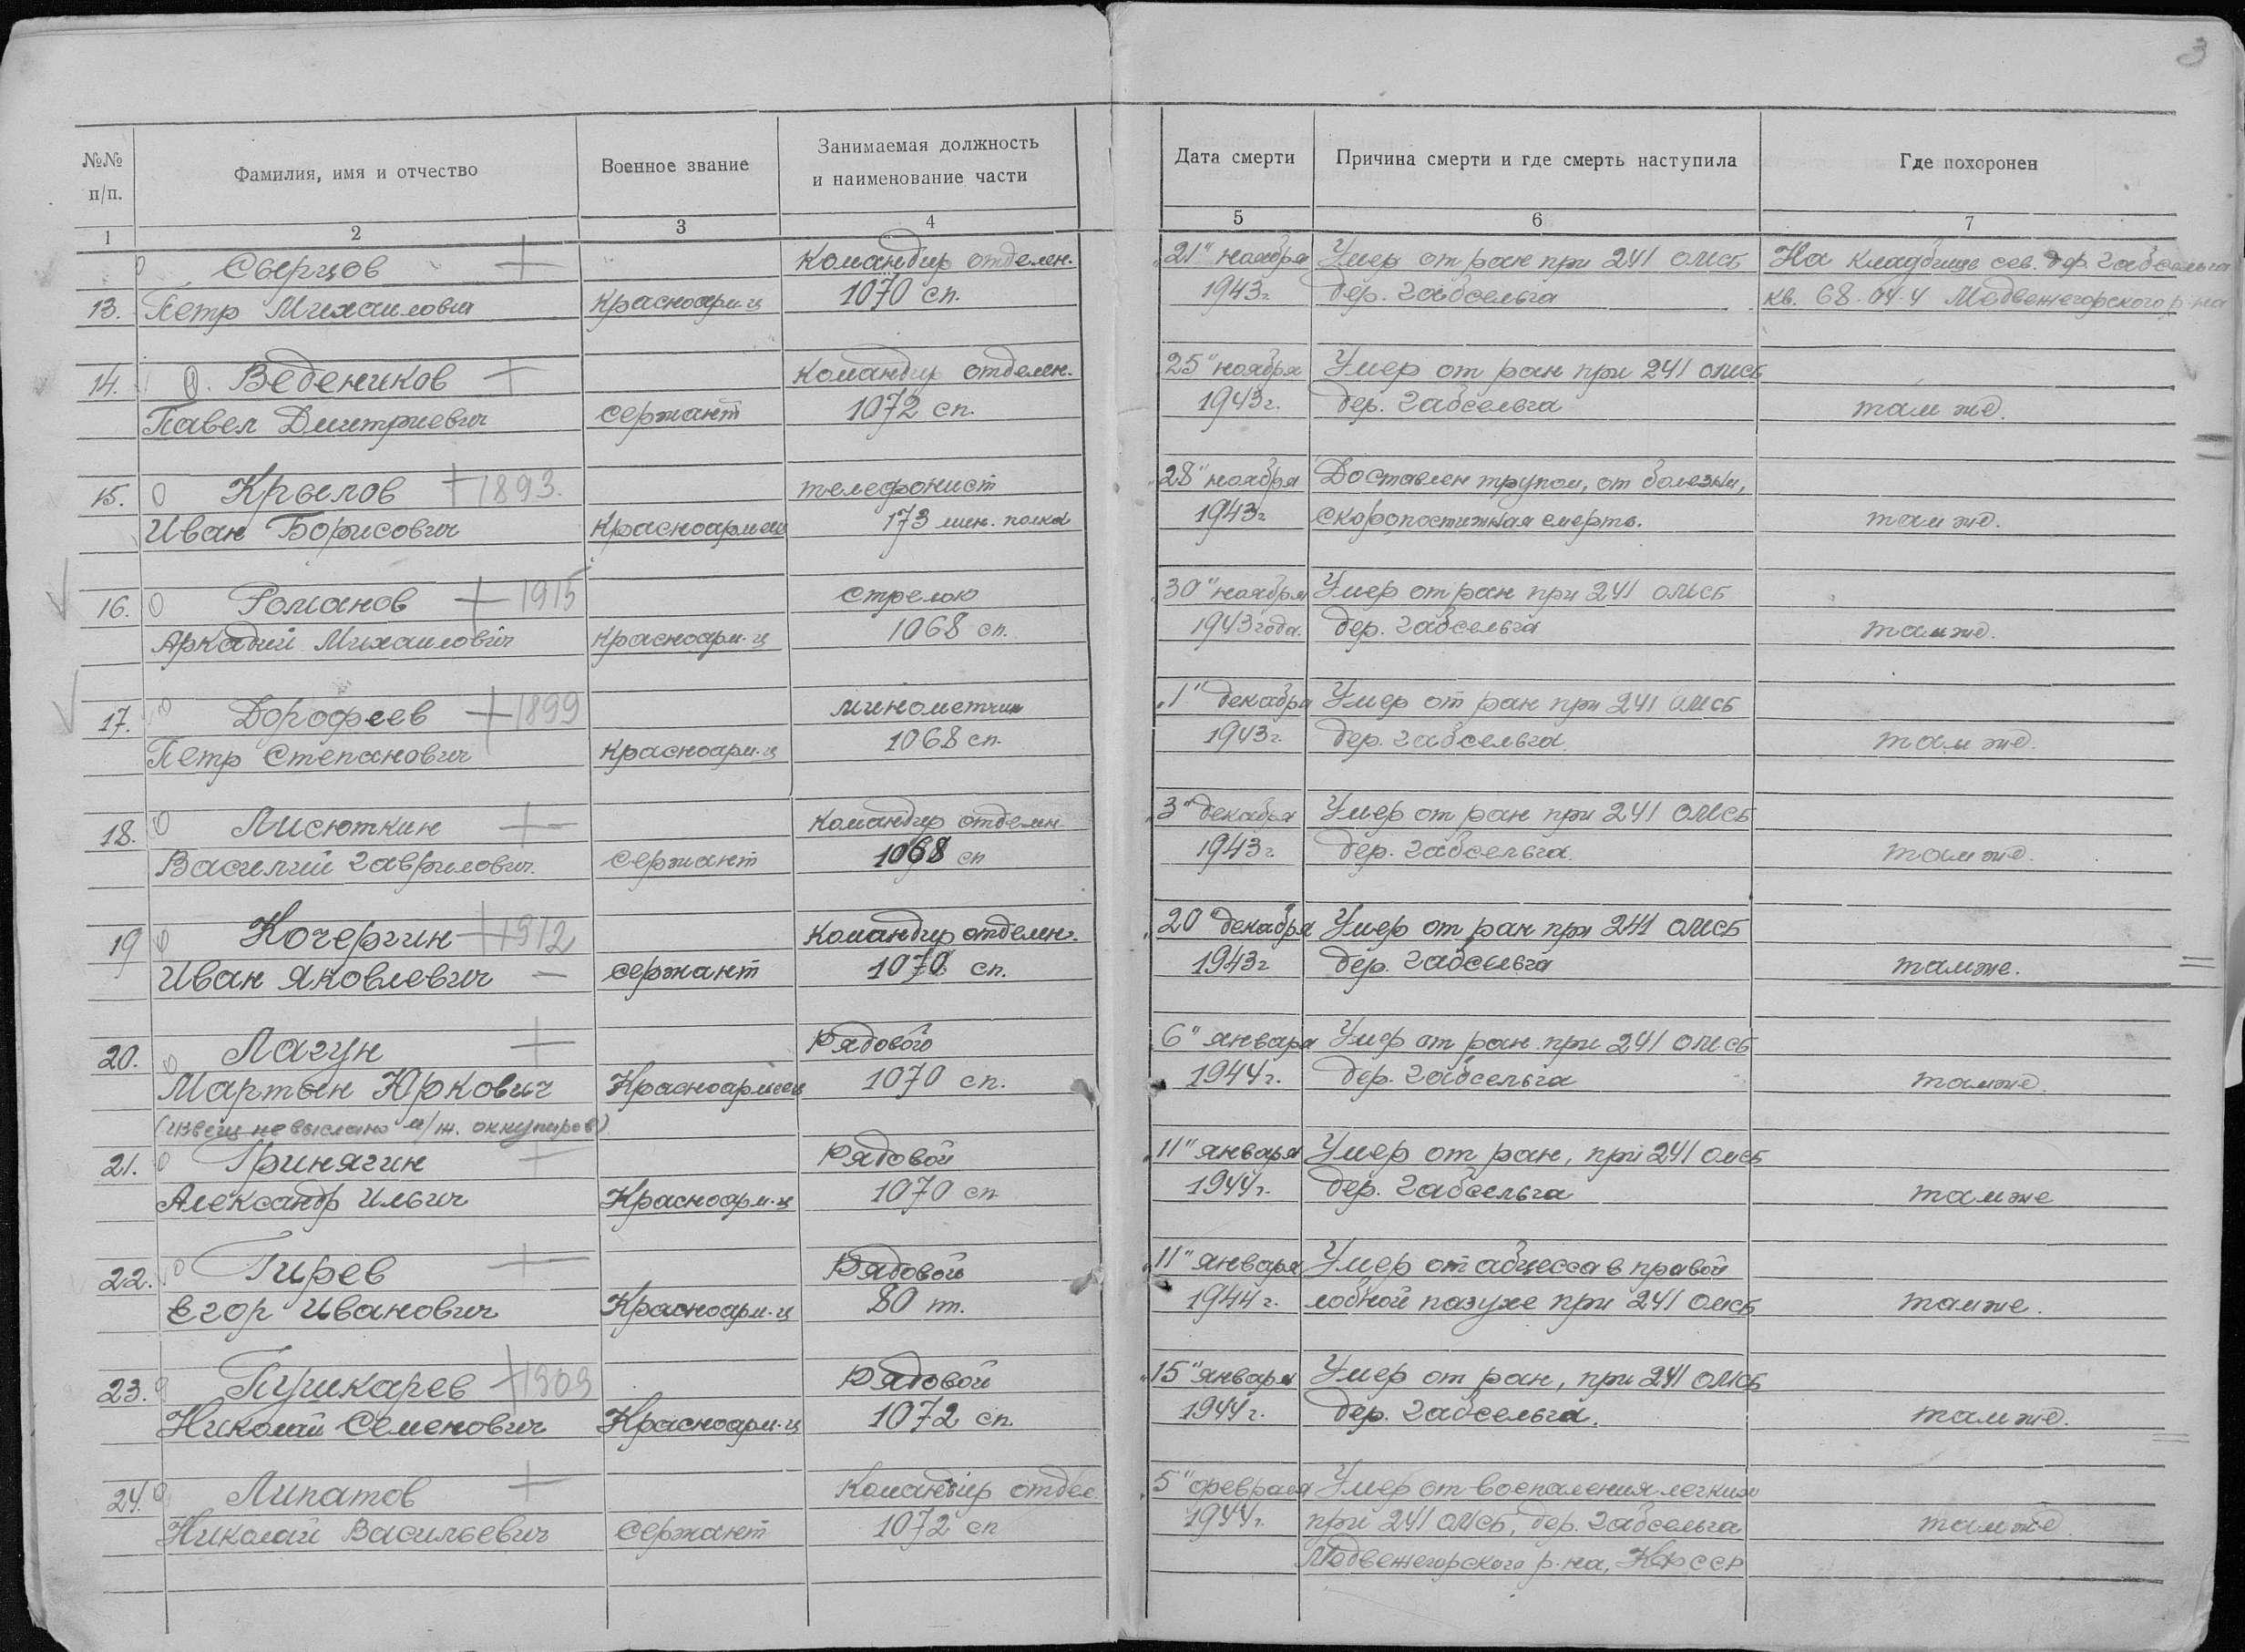 3
№№ п/п.
Фамилия, имя и отчество
Военное звание
Занимаемая должность и наименование части
Дата смерти
Причина смерти и где смерть наступила
Где похоронен
1 2 3 4 5 6 7
Сверцов Командир отделен. 21" ноября Умер от ран при 241 омсб На кладбище сев. дер. Габсельга
13. Петр Михаилович Красноарм-ц 1070 сп. 1943г. дер. Габсельга кв. 68-04-Ч Медвежегорского р-на
14. Ведеников Командир отделен. 25" ноября Умер от ран при 241 омсб
Павел Дмитриевич сержант 1072 сп. 1943г. дер. Габсельга там же.
15. Крылов 1893. телефонист 28" ноября Доставлен трупом, от болезни,
Иван Борисович Красноармеец 173 мин. полка 1943г. скоропостижная смерть. там же.
16. Романов 1915 стрелок 30" ноября Умер от ран при 241 омсб
Аркадий Михаилович Красноарм-ц 1068 сп. 1943 года. дер. Габсельга там же.
17. Дорофеев 1899 минометчик „1" декабря Умер от ран при 241 омсб
Петр Степанович Красноарм-ц 1068 сп. 1943г. дер. Габсельга там же.
18. Лисюткин Командир отделен 3" декабря Умер от ран при 241 омсб
Василий Гаврилович. сержант 1068 сп 1943г. дер. Габсельга там же.
19 Кочергин 1912 Командир отделен. 20 декабря Умер от ран при 241 омсб
Иван Яковлевич сержант 1070 сп. 1943г дер. Габсельга там же.
20. Лагун Рядовой 6" января Умер от ран при 241 омсб
Мартын Юркович Красноармеец 1070 сп. 1944г. дер. Габсельга там же.
(извещ. не выслано м/ж. оккупиров)
21. Гринягин Рядовой „11" января Умер от ран, при 241 омсб
Александр Ильич Красноарм-ц 1070 сп 1944г. дер. Габсельга там же
22. Гирев Рядовой „11" января Умер от абцесса в правой
Егор Иванович Красноарм-ц 80 1944 г. лобной пазухе при 241 омсб там же.
23. Пушкарев 1909 Рядовой „15" января Умер от ран, при 241 омсб
Николай Семенович Красноарм-ц 1072 сп. 1944г. дер. Габсельга. там же.
24. Липатов Командир отдел. „5" февраля Умер от воспаления легких
Николай Васильевич сержант 1072 сп 1944г. при 241 омсб, дер. Габсельга там же.
Медвежегорского р-на, КФССР